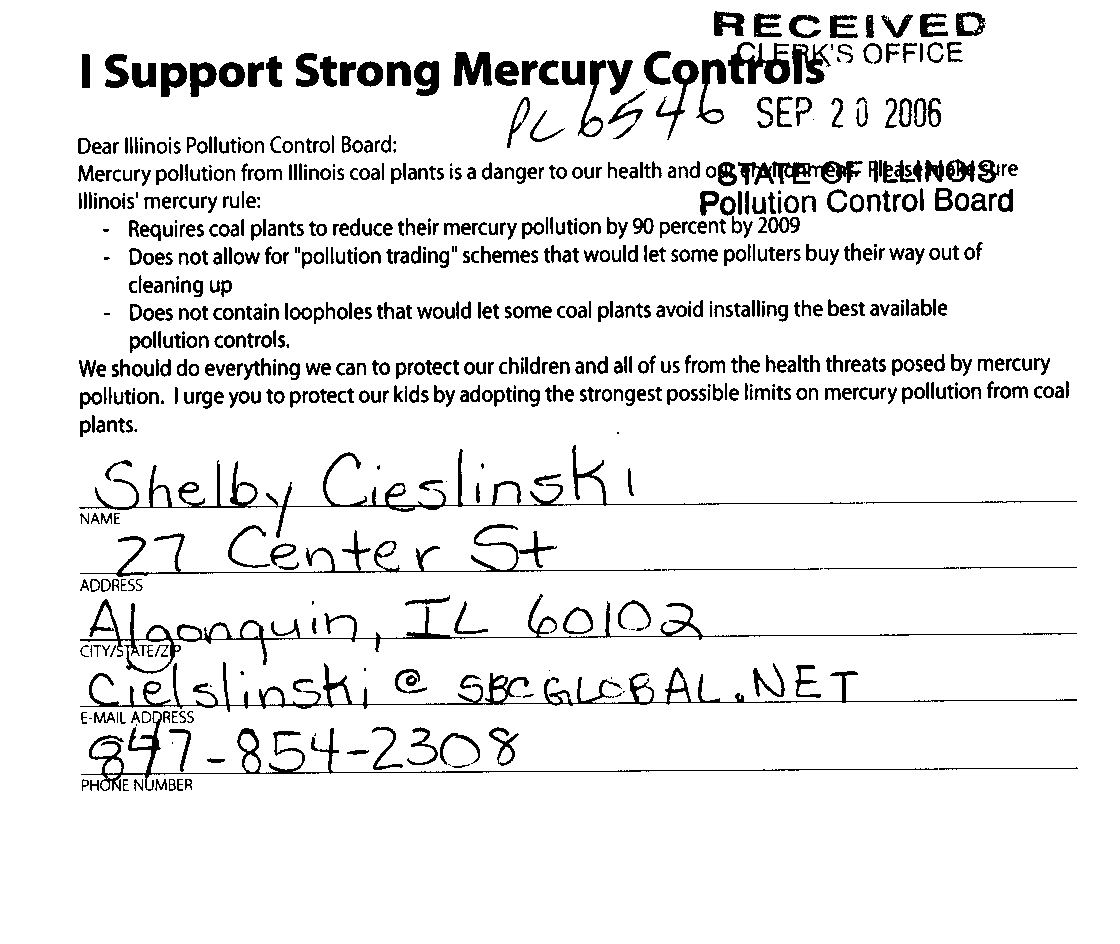 RECEIVED
CLERK'S OFFICE
I Support Strong Mercury Controls
PC 6546
SEP 20 2006
Dear Illinois Pollution Control Board:
Mercury pollution from Illinois coal plants is a danger to our health and our environment. Please make sure
STATE OF ILLINOIS
Illinois' mercury rule:
Pollution Control Board
- Requires coal plants to reduce their mercury pollution by 90 percent by 2009
- Does not allow for "pollution trading" schemes that would let some polluters buy their way out of
cleaning up
- Does not contain loopholes that would let some coal plants avoid installing the best available
pollution controls.
We should do everything we can to protect our children and all of us from the health threats posed by mercury
pollution. I urge you to protect our kids by adopting the strongest possible limits on mercury pollution from coal
plants.
Shelby Cieslinski
NAME
27 Center St
ADDRESS
Algonquin, IL 60102
CITY/STATE/ZIP
Cielslinski@SBCGLOBAL.NET
E-MAIL ADDRESS
847-854-2308
PHONE NUMBER